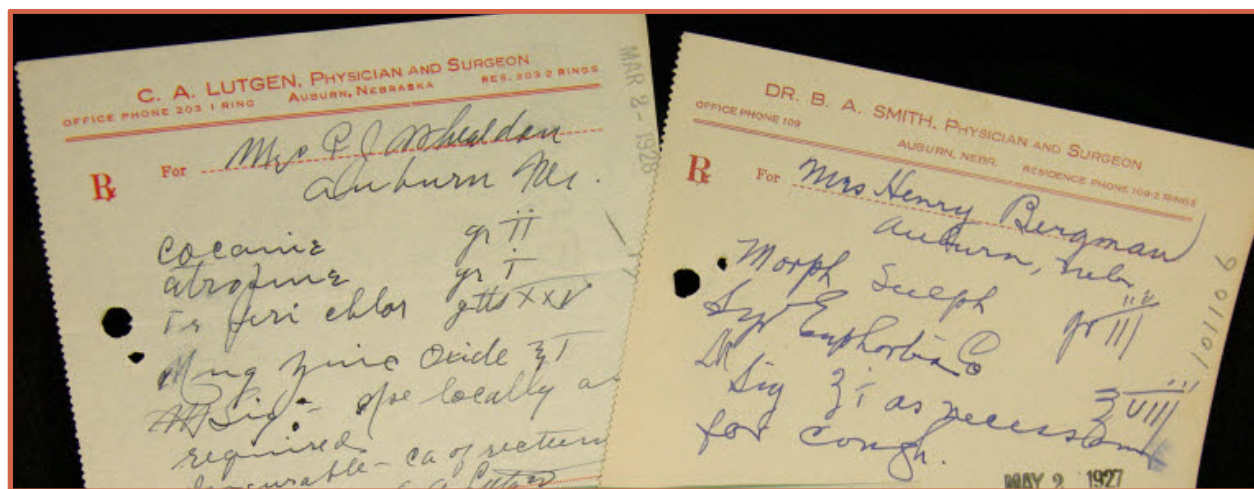 C. A. LUTGEN, PHYSICIAN AND SURGEON
OFFICE PHONE 203 1 RING AUBURN, NEBRASKA RES. 203 2 RINGS
MAR 2 - 1928
℞ For Mrs P J Whealdon
Auburn Neb.
Cocaine gr ii
atropine gr i
Tr ferri chlor gtts XXV
Ung Zinc Oxide ℥ I
Sig - use locally as
required
Incurable - ca of rectum
DR. B. A. SMITH, PHYSICIAN AND SURGEON
OFFICE PHONE 109 AUBURN, NEBR. RESIDENCE PHONE 109-2 RINGS
℞ For Mrs Henry Bergman
Auburn, Nebr.
901101
Morph Sulph gr iii
Syr Euphorbia Co ℥ viii
Sig ʒ i as necessary
for cough.
MAY 2 1927